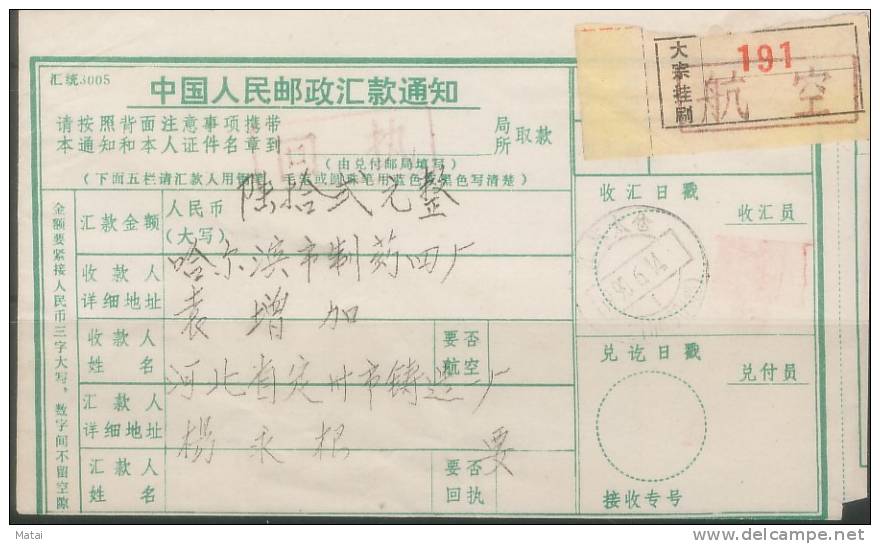 汇统3005
中国人民邮政汇款通知
请按照背面注意事项携带
本通知和本人证件名章到 局所 取款
(由兑付邮局填写)
(下面五栏请汇款人用钢笔、毛笔或圆珠笔用蓝色或黑色写清楚)
回执
大宗挂刷
191
航空
金额要紧接人民币三字大写,数字间不留空隙
汇款金额
人民币
(大写)
陆拾贰元整
收款人
详细地址
哈尔滨市制药四厂
收款人
姓名
袁增加
要否
航空
汇款人
详细地址
河北省定州市铸造厂
汇款人
姓名
杨永根
要否
回执
要
收汇日戳
收汇员
95.6.14
兑讫日戳
兑付员
接收专号
Matai
delcampe.net